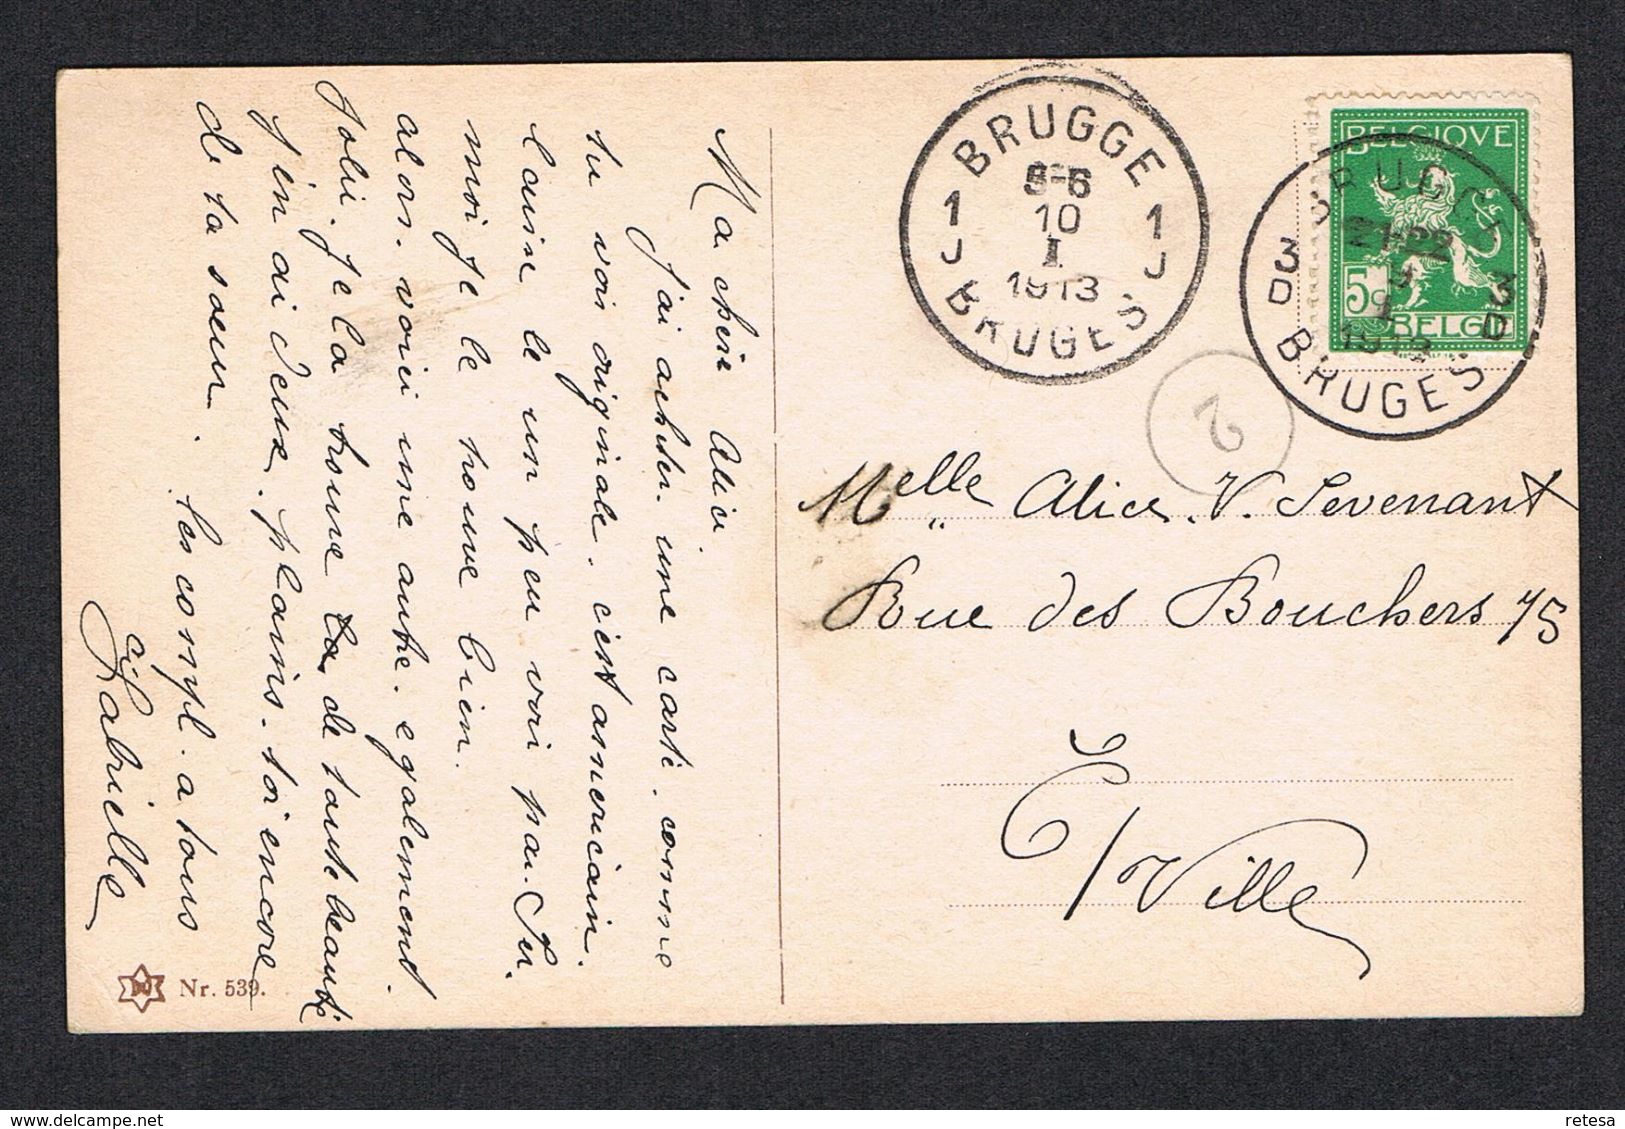 Ma chère Alice
j'ai acheter une carte. comme
tu vois originale. c'est americain.
laisse le un peu voir pa. Tu
moi je le trouve bien.
alors. voici une autre. egalement
Jolie. Je la trouve la de toute beauté
J'en ai deux. plains. toi encore
de ta sœur. les compl. a tous
Gabrielle
Nr. 539.
BRUGGE
5-6
10
I
1913
1 J
1 J
BRUGES
BELGIQUE
5c
BELGIË
BRUGGE
21-22
9
I
1913
3 D
3 D
BRUGES
2
Melle Alice. V. Sevenant
Rue des Bouchers 75
E/Ville
delcampe.net
retesa